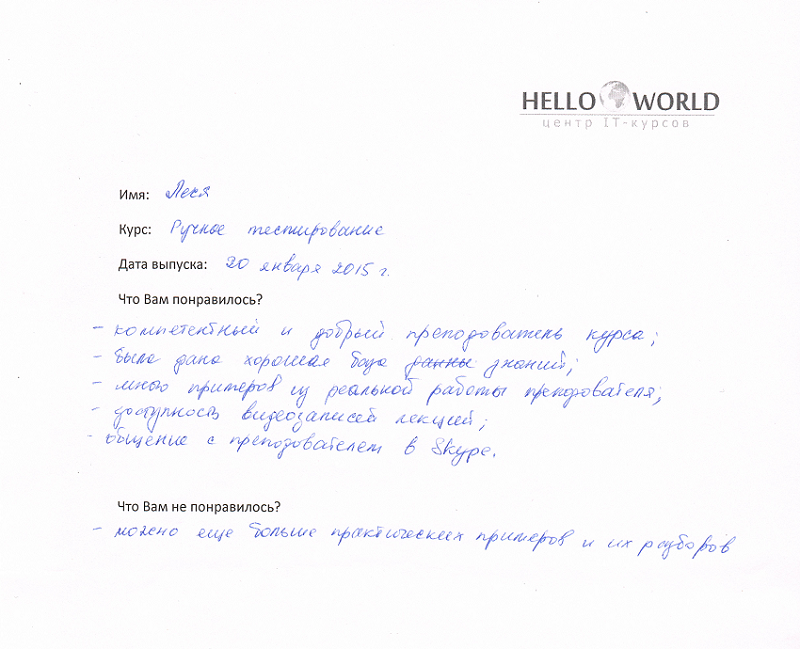 HELLO WORLD
центр IT-курсов
Имя: Леся
Курс: Ручное тестирование
Дата выпуска: 20 января 2015 г.
Что Вам понравилось?
- компетентный и добрый преподователь курса;
- была дана хорошая база данны знаний;
- много примеров из реальной работы преподователя;
- доступность видеозаписей лекций;
- общение с преподователем в Skype.
Что Вам не понравилось?
- можно еще больше практических примеров и их разборов